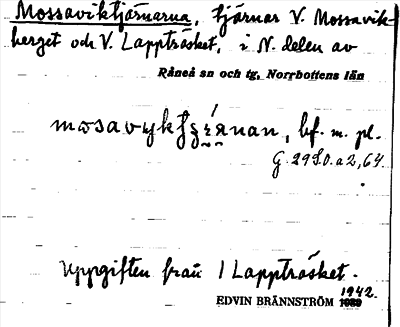 Mossaviktjärnarna, tjärnar V. Mossavik-
berget och V. Lappträsket, i N. delen av
Råneå sn och tg, Norrbottens län
bf. m. pl.
G. 2950. a 2, 64.
Uppgiften från V Lappträsket.
1942.
EDVIN BRÄNNSTRÖM 1939